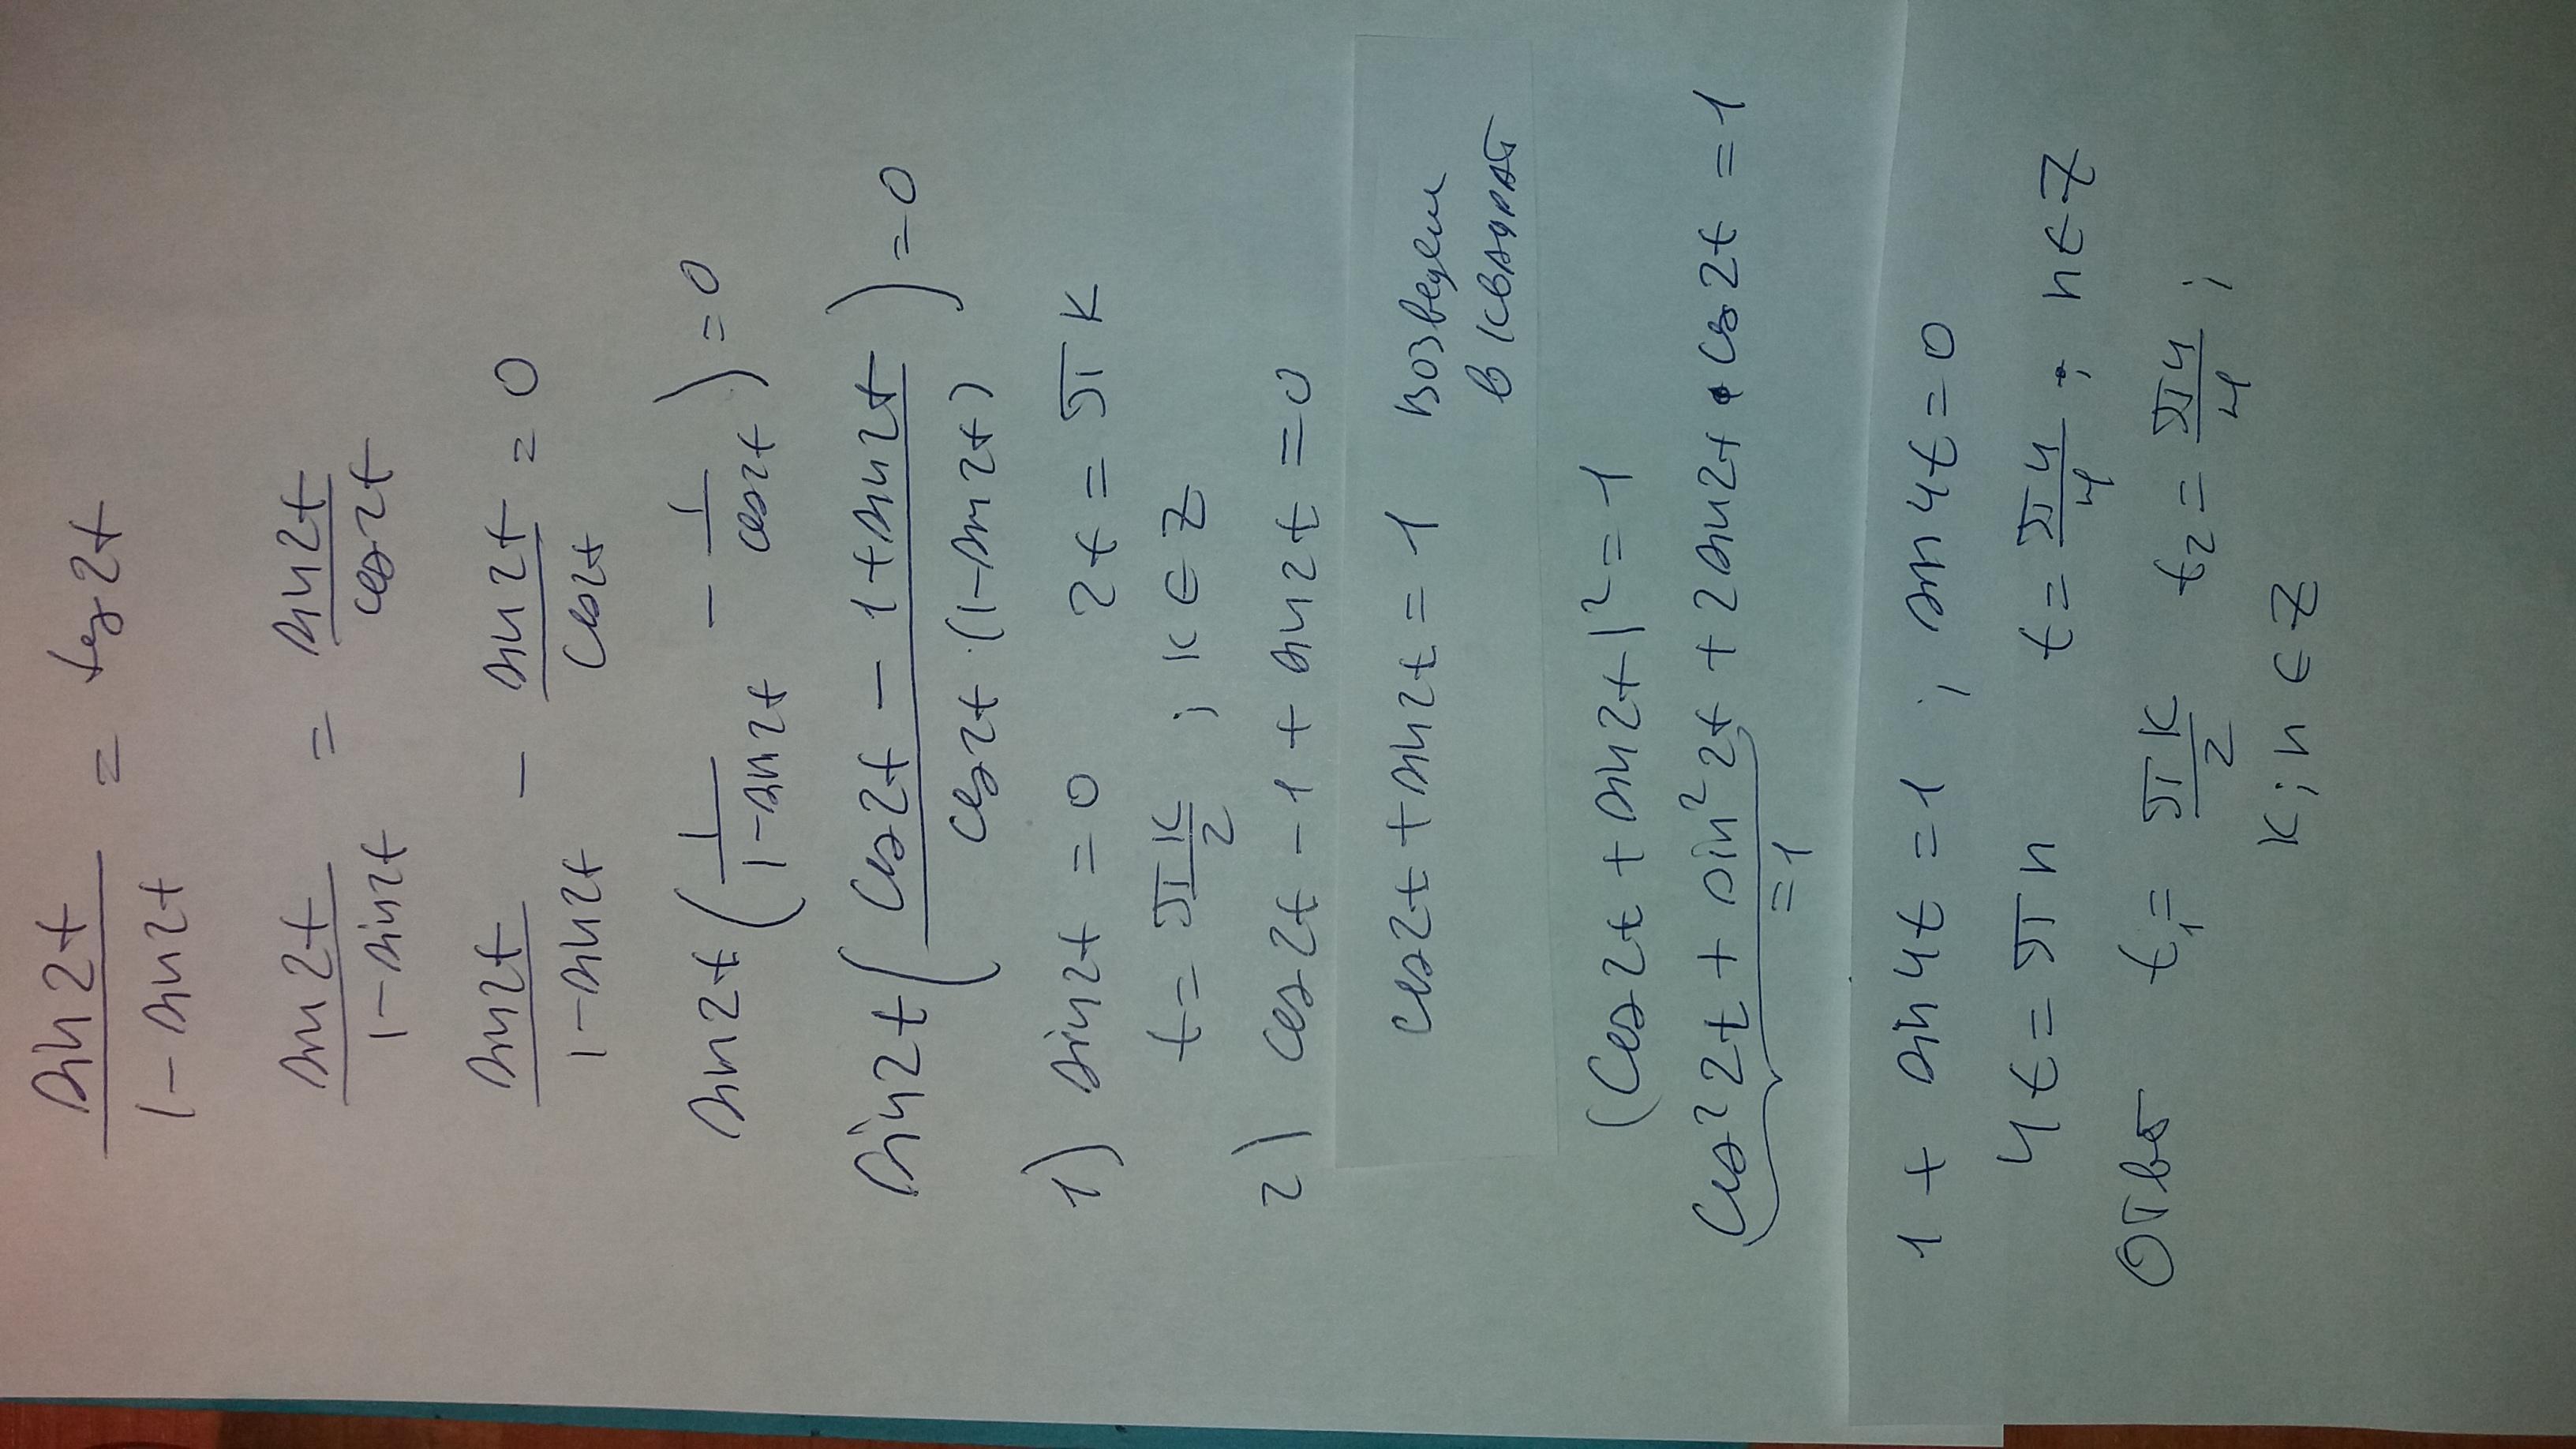 sin2t / 1-sin2t = tg2t
sin2t / 1-sin2t = sin2t / cos2t
sin2t / 1-sin2t - sin2t / cos2t = 0
sin2t ( 1 / 1-sin2t - 1 / cos2t ) = 0
sin2t ( cos2t - 1 + sin2t / cos2t · (1-sin2t) ) = 0
1) sin2t = 0 2t = πk
t = πk / 2 ; k ∈ Z
2) cos2t - 1 + sin2t = 0
cos2t + sin2t = 1 возведем
в квадрат
(cos2t + sin2t)² = 1
cos²2t + sin²2t + 2sin2t · cos2t = 1
= 1
1 + sin4t = 1 ; sin4t = 0
4t = πn t = πn / 4 ; n ∈ Z
Ответ t₁ = πk / 2 t₂ = πn / 4 ;
k; n ∈ Z